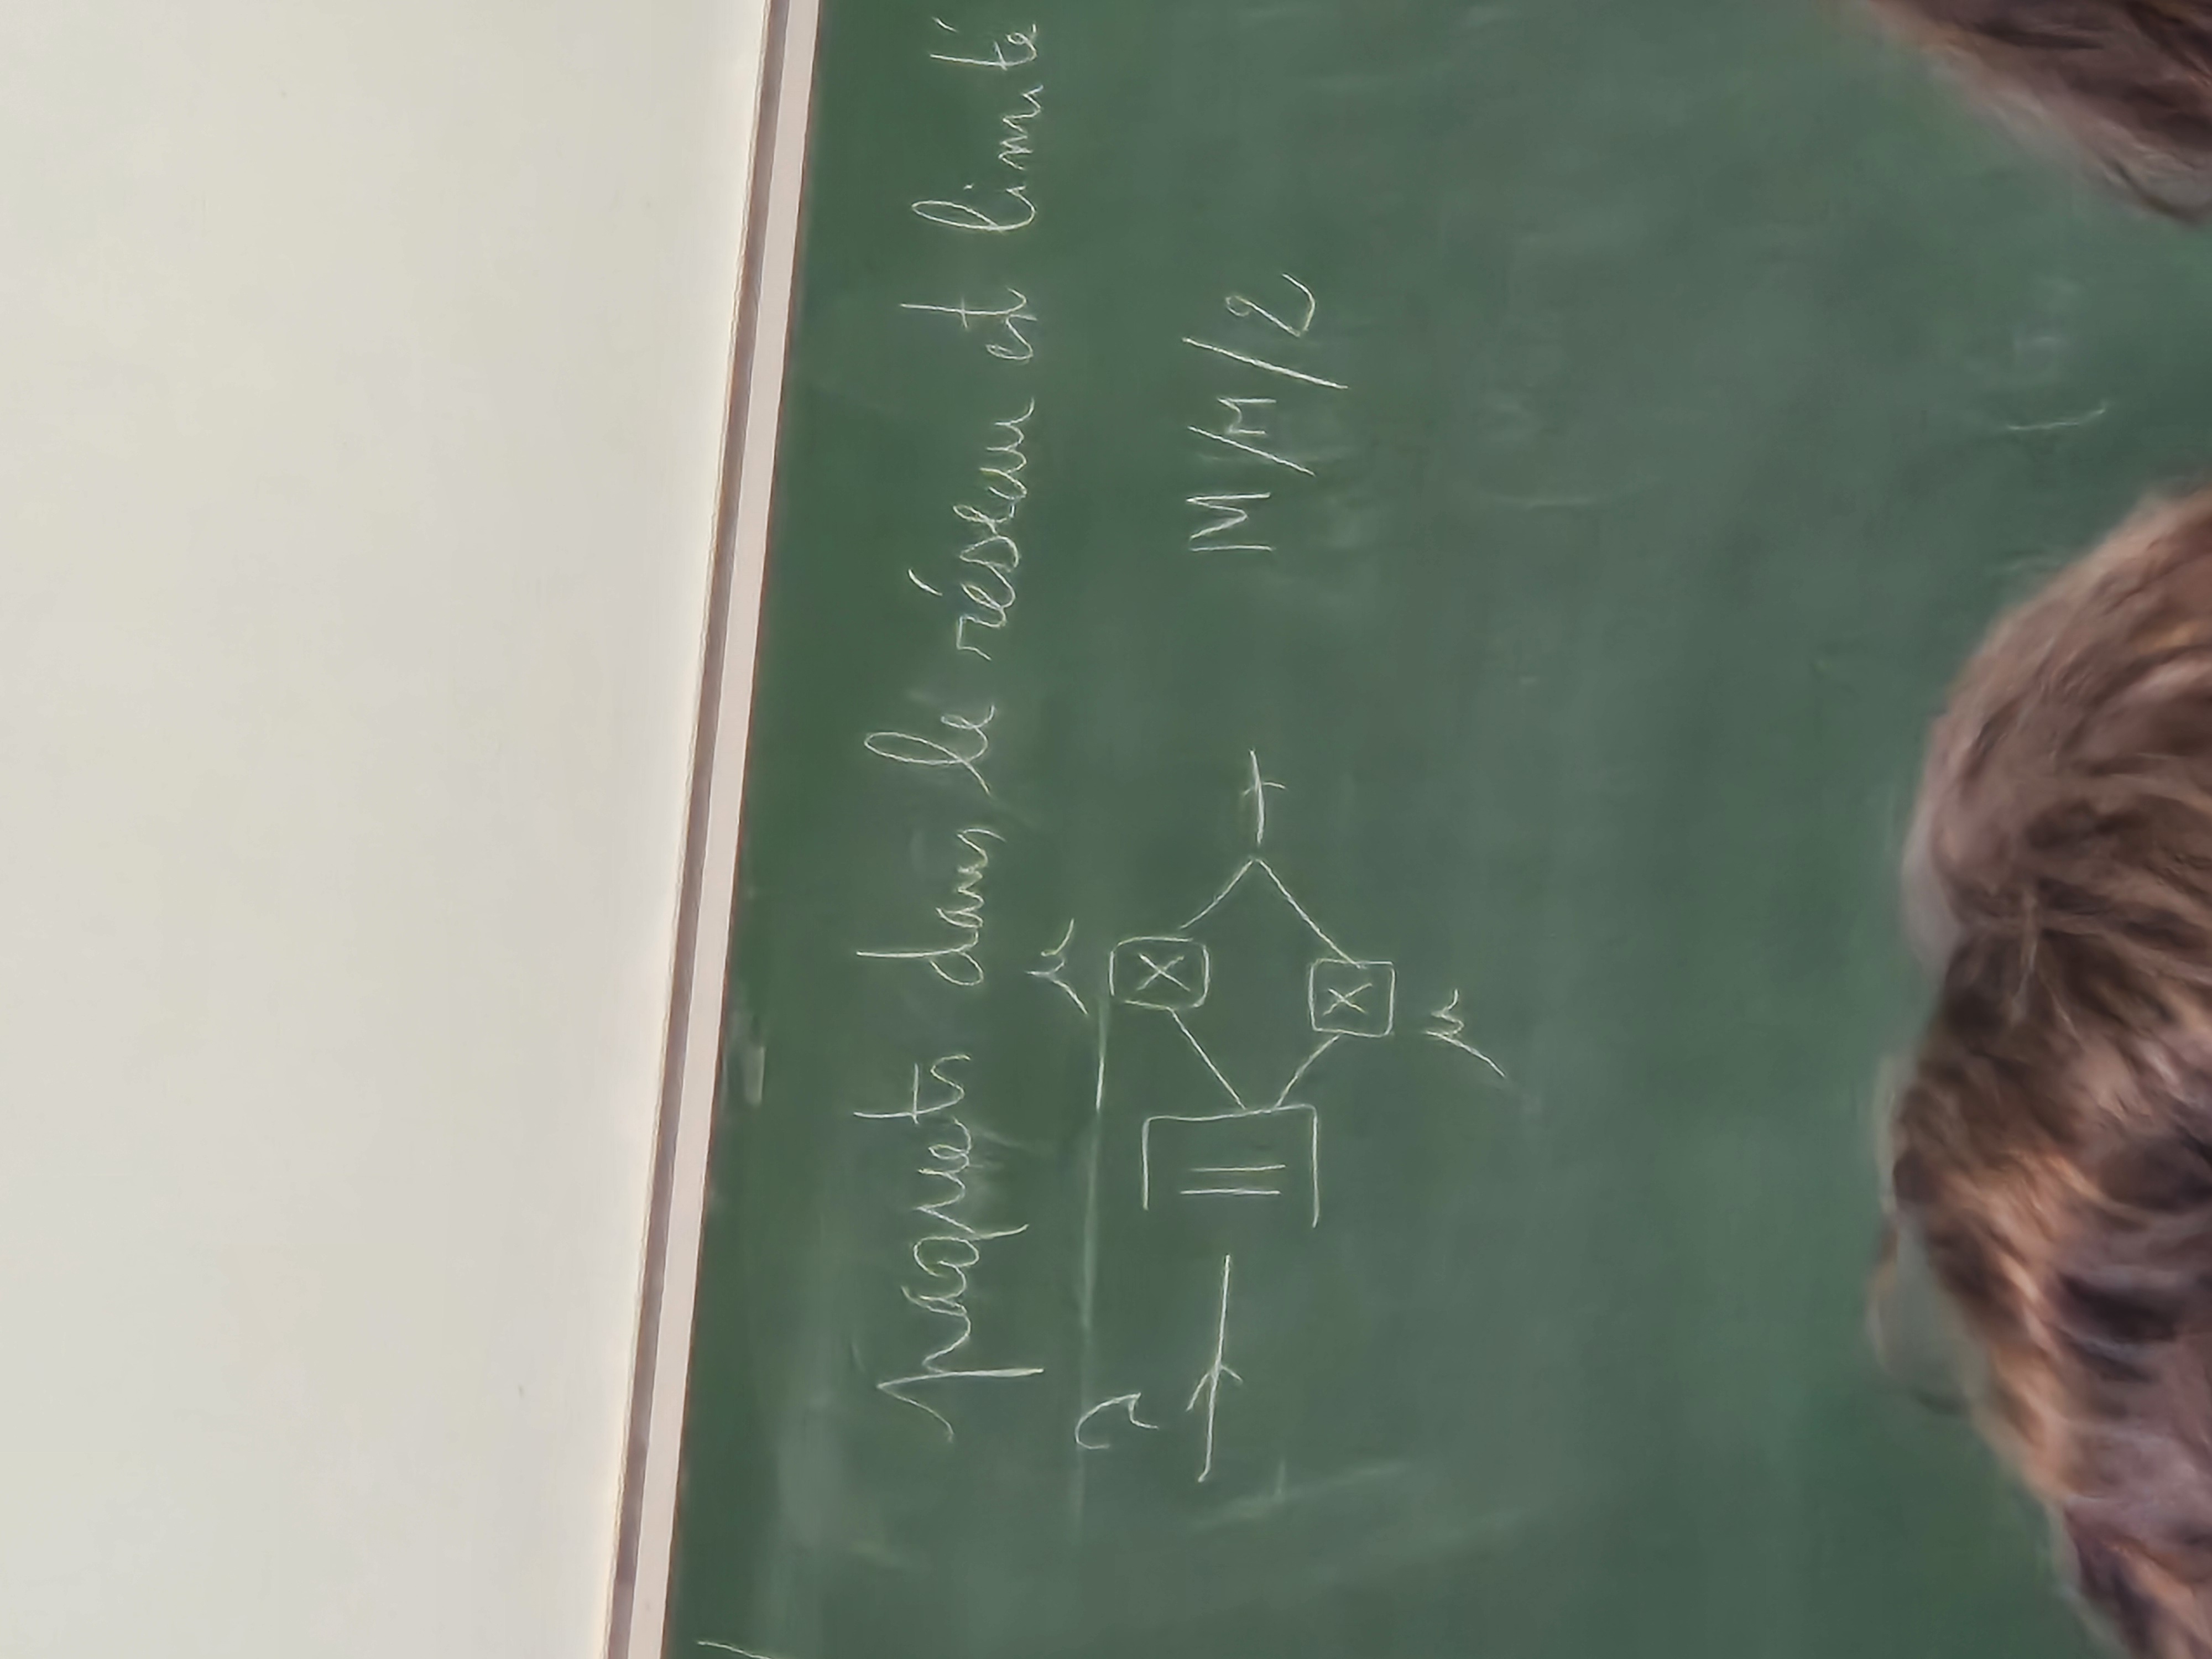 paquets dans le réseau est limité
μ
λ
M/M/2
μ